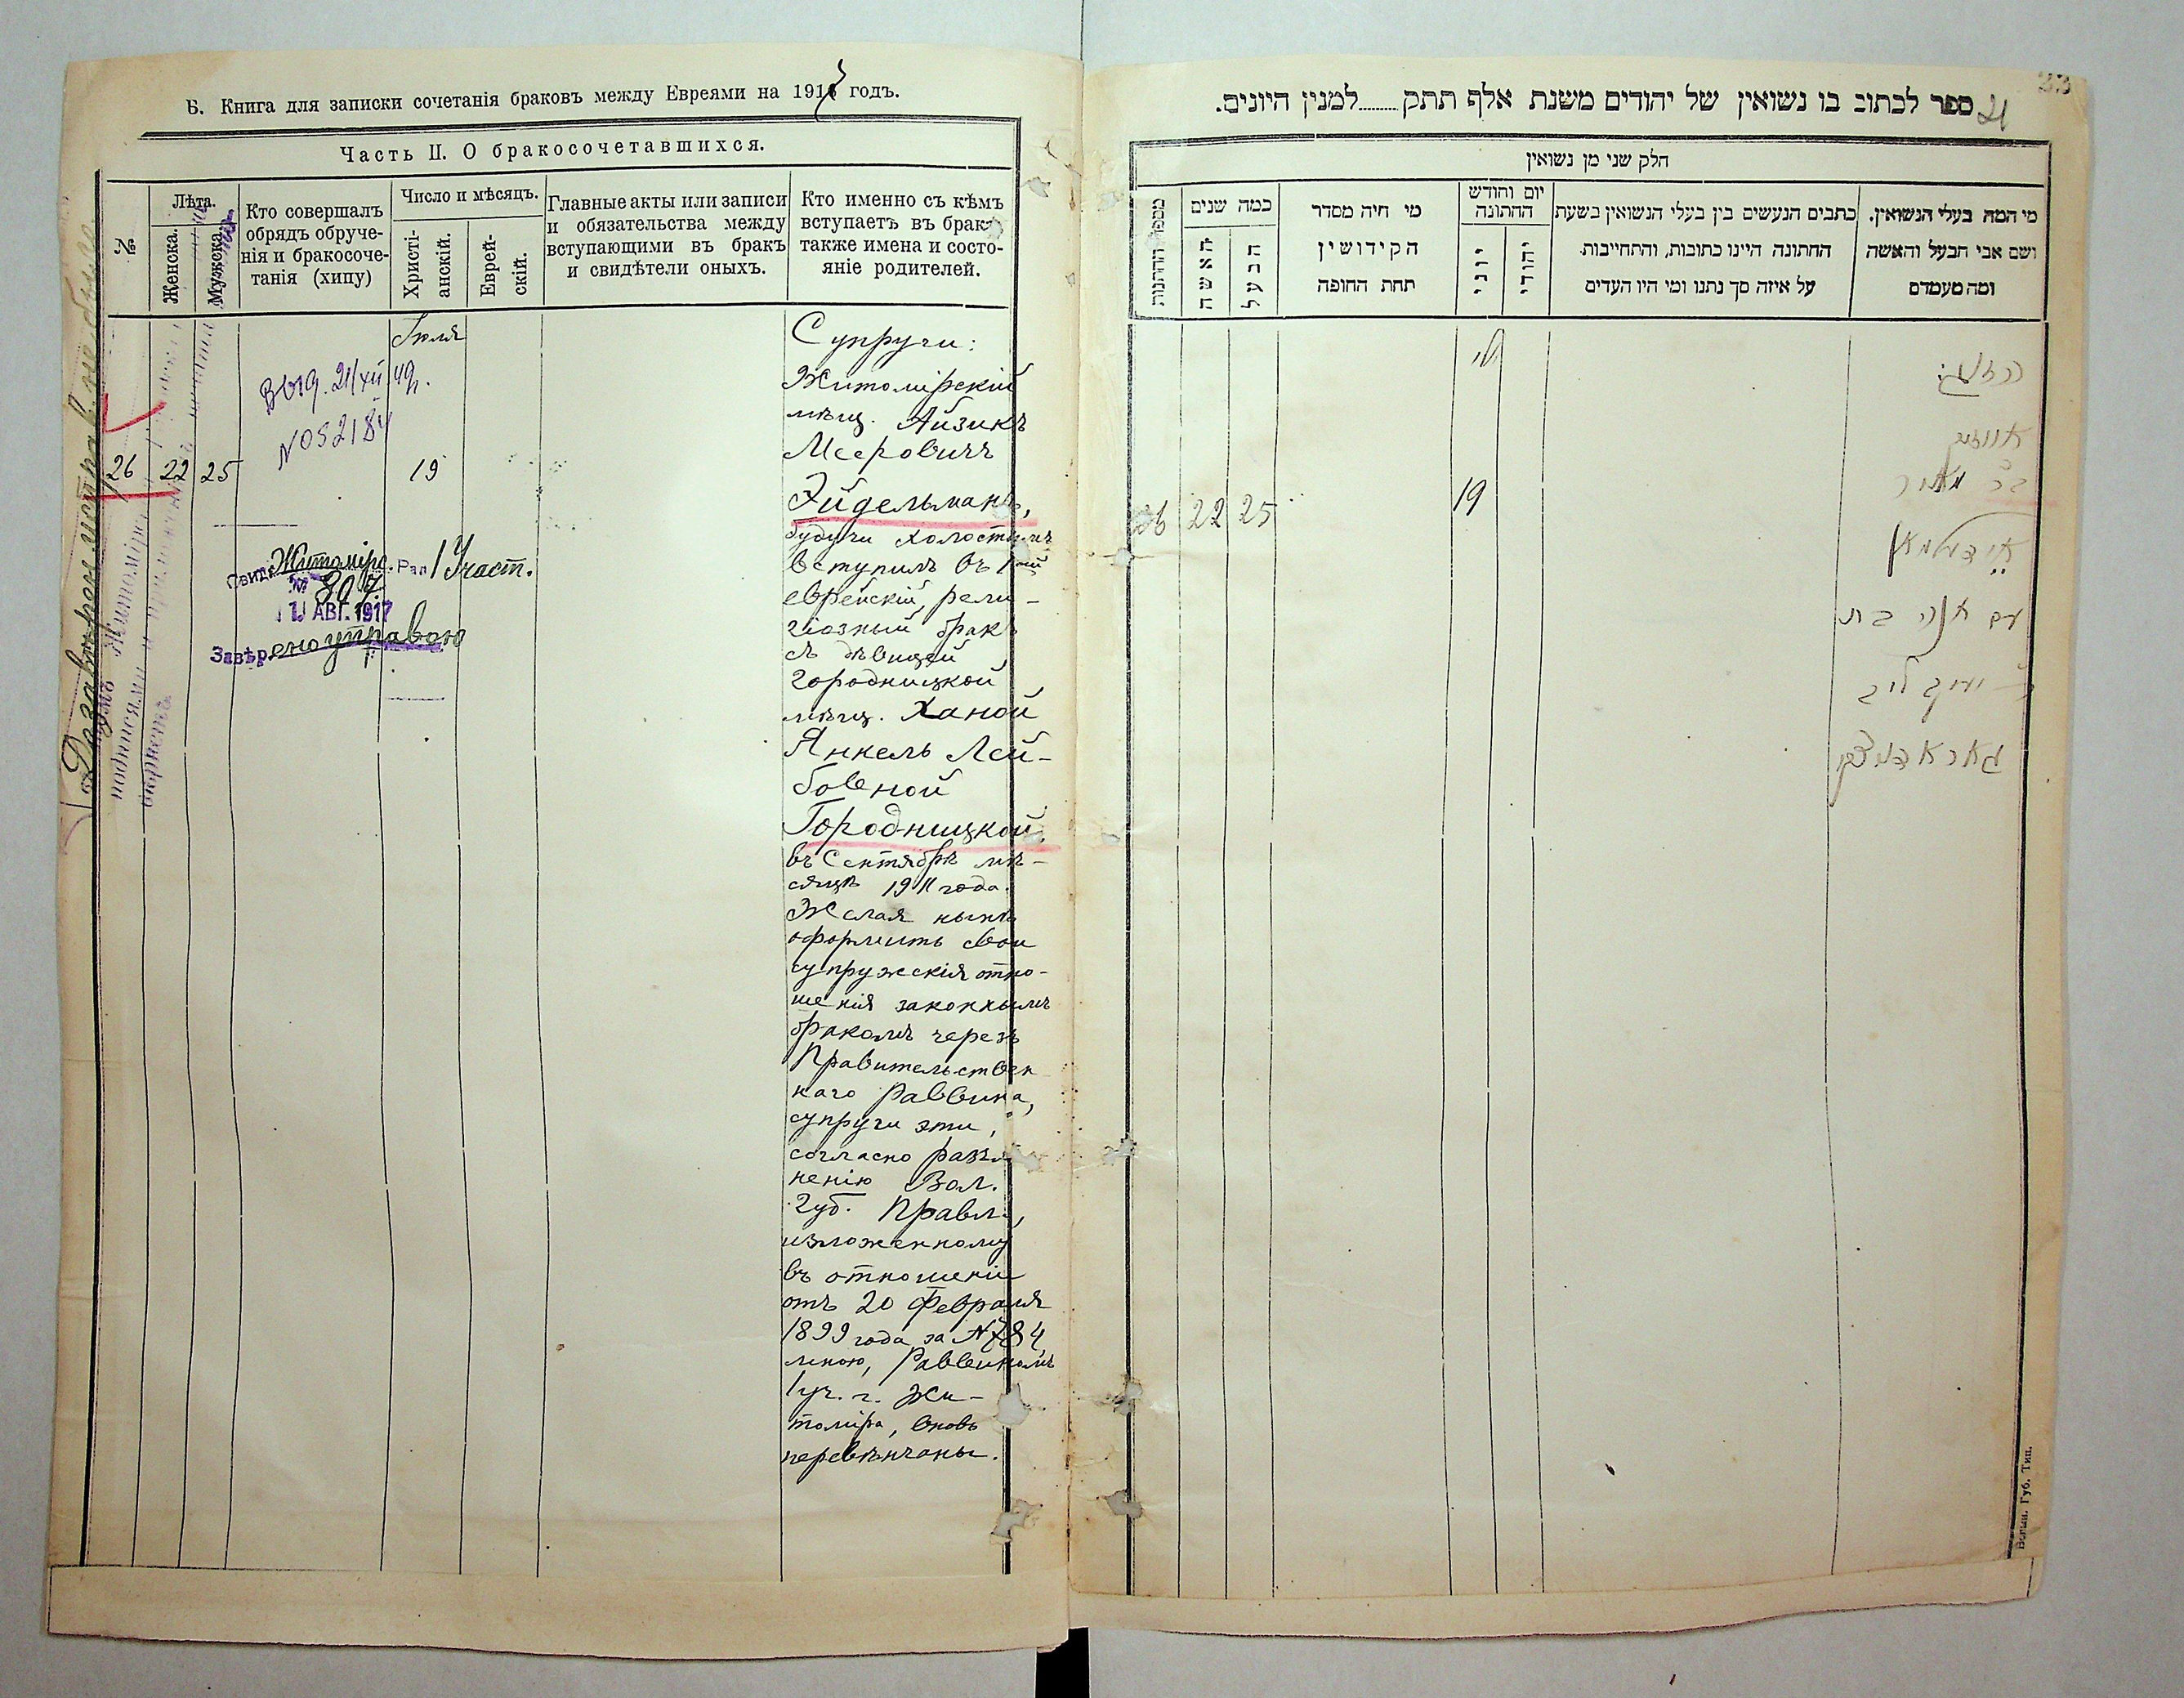 Б. Книга для записки сочетанія браковъ между Евреями на 191 годъ.
Часть II. О бракосочетавшихся.
№
Лѣта.
Женска.
Мужска.
Кто совершалъ
обрядъ обруче-
нія и бракосоче-
танія (хипу)
Число и мѣсяцъ.
Христі-
анскій.
Еврей-
скій.
Главные акты или записи
и обязательства между
вступающими въ бракъ
и свидѣтели оныхъ.
Кто именно съ кѣмъ
вступаетъ въ бракъ
также имена и состо-
яніе родителей.
Іюля
Выд. 21/XII
26 22 25
19
Свид. Житомірс. Рав. 1 Участ.
№ 807
АВГ. 1917
Завѣрено управою
Супруги:
Житомірскій
мѣщ. Айзикъ
Мееровичъ
Эйдельманъ,
будучи холостымъ
вступилъ въ 1-ый
еврейскій, рели-
гіозный бракъ
съ дѣвицей
городницкой
мѣщ. Ханой
Янкель Лей-
бовной
Городницкой
въ Сентябрѣ мѣ-
сяцѣ 1911 года.
Желая нынѣ
оформить свои
супружескія отно-
шенія законнымъ
бракомъ черезъ
Правительствен
наго Раввина,
супруги эти,
согласно разъя
ненію Вол.
Губ. Правл.,
изложенному
въ отношеніи
отъ 20 Февраля
1899 года за № 784
мною, Раввиномъ
1 уч. г. Жи-
томіра, вновь
перевѣнчаны.
Раввинъ
Житоміръ
подписями и
скрѣпленъ
ספר לכתוב בו נשואין של יהודים משנת אלף תתק........למנין היונים.
חלק שני מן נשואין
מספר החתונות
כמה שנים
האשה
הבעל
מי היה מסדר
הקידושין
תחת החופה
יום וחודש
החתונה
יוני
יהודי
כתבים הנעשים בין בעלי הנשואין בשעת
החתונה היינו כתובות, והתחייבות
על איזה סך נתנו ומי היו העדים
מי המה בעלי הנשואין.
ושם אבי הבעל והאשה
ומה מעמדם
26 22 25
19
בר מאיר
אידעלמאן
עם אנה בת
יעקב ליב
גאראדניצקי
Волын. Губ. Тип.